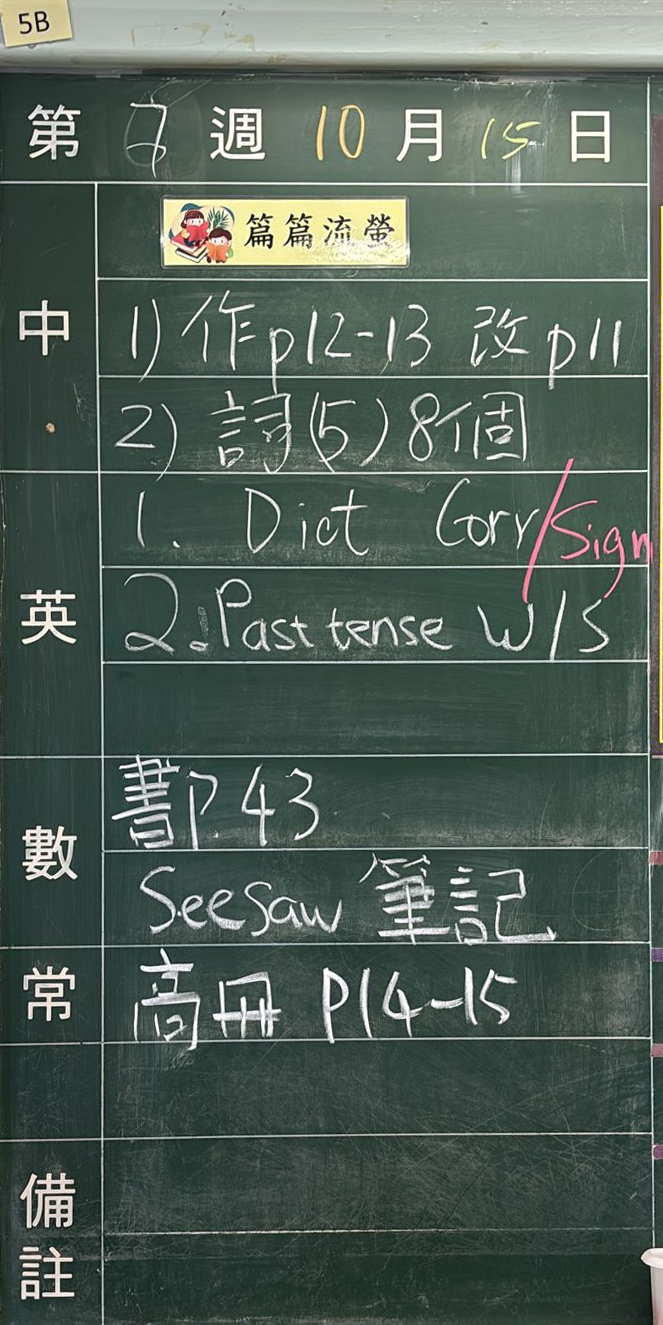 5B
第 7 週 10 月 15 日
篇篇流螢
中
1) 作p12-13 改p11
2) 詞(5) 8個
英
1. Dict Corr/Sign
2. Past tense W/S
數
書P.43
Seesaw 筆記
常
高冊 P14-15
備註